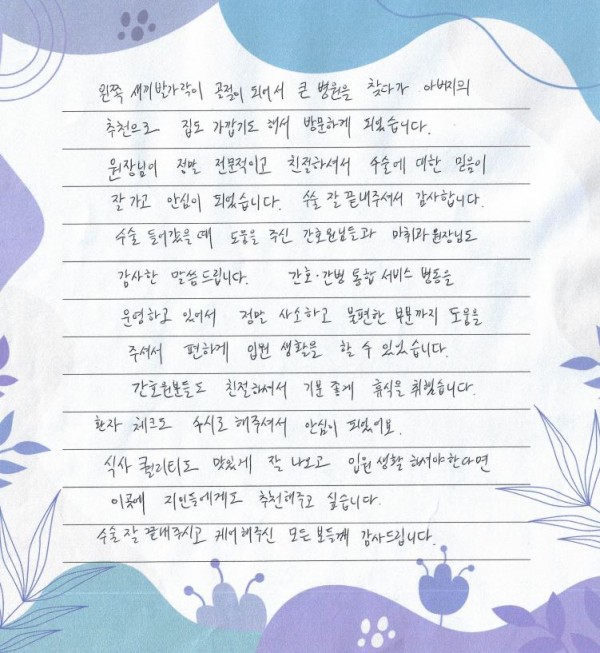 왼쪽 새끼발가락이 골절이 되어서 큰 병원을 찾다가 아버지의
추천으로 집도 가깝기도 해서 방문하게 되었습니다.
원장님이 정말 전문적이고 친절하셔서 수술에 대한 믿음이
잘 가고 안심이 되었습니다. 수술 잘 끝내주셔서 감사합니다.
수술 들어갔을 때 도움을 주신 간호원님들과 마취과 원장님도
감사한 말씀드립니다. 간호·간병 통합 서비스 병동을
운영하고 있어서 정말 사소하고 불편한 부분까지 도움을
주셔서 편하게 입원 생활을 할 수 있었습니다.
간호원분들도 친절하셔서 기분 좋게 휴식을 취했습니다.
환자 체크도 수시로 해주셔서 안심이 되었어요.
식사 퀄리티도 맛있게 잘 나오고 입원 생활 해서야한다면
이곳에 지인들에게도 추천해주고 싶습니다.
수술 잘 끝내주시고 케어해주신 모든 분들께 감사드립니다.